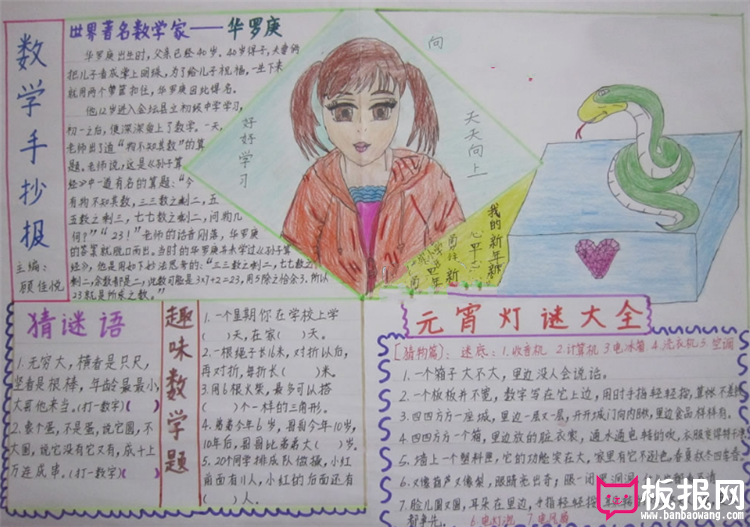 数学手抄报
主编：
顾佳悦
世界著名数学家——华罗庚
华罗庚出生时，父亲已经40岁，40岁得子，夫妻俩
把儿子当成掌上明珠，为了给儿子祝福，一生下来
就用两个箩筐扣住，华罗庚因此得名。
他12岁进入金坛县立初级中学学习，
初一之后，便深深爱上了数学。一天，
老师出了道“物不知其数”的算
题。老师说，这是《孙子算
经》中一道有名的算题：“今
有物不知其数，三三数之剩二，五
五数之剩三，七七数之剩二，问物几
何？”“23！”老师的话音刚落，华罗庚
的答案就脱口而出。当时的华罗庚尚未学过《孙子算
经》，他是用如下妙法思考的：“三三数之剩二，七七数之
剩二，余数都是二，此数可能是3×7+2=23，用5除之恰余3，所以
23就是所求之数。”
好好学习
向
天天向上
我的新年新
猜谜语
1.元穷大，横看是只尺，
坚看是根棒，年龄最最小，
大哥他来当。(打一数字)( )
2.象个蛋，不是蛋，说它圆，不
大圆，说它没有它又有，成十上
万连成串。(打一数字)( )
趣味数学题
1.一个星期你在学校上学
( )天，在家( )天。
2.一根绳子长16米，对折以后，
再对折，每折长( )米。
3.用6根火柴，最多可以搭
( )个一样的三角形。
4.弟弟今年6岁，哥哥今年10岁，
10年后，哥哥比弟弟大( )岁。
5.20个同学排成队做操，小红
前面有11人，小红的后面还有
( )人。
元宵灯谜大全
[猜物篇]：迷底：1.收音机 2.计算机 3.电冰箱 4.洗衣机 5.空调
1.一个箱子大不大，里边没人会说话。
2.一个板板并不宽，数字写在它上边，用时手指轻轻按，算帐不差
3.四四方方一座城，里边一片又一层，开开城门向内瞅，里边食品样样有。
4.四四方方一个箱，里边放的脏衣裳，通水通电转的欢，衣服变得
5.墙上一个塑料匣，它的功能实在大，
6.又像葫芦又像梨，眼睛亮出奇，眼一闭
7.脸儿圆又圆，耳朵在里边，
板报网
www.banbaowang.com